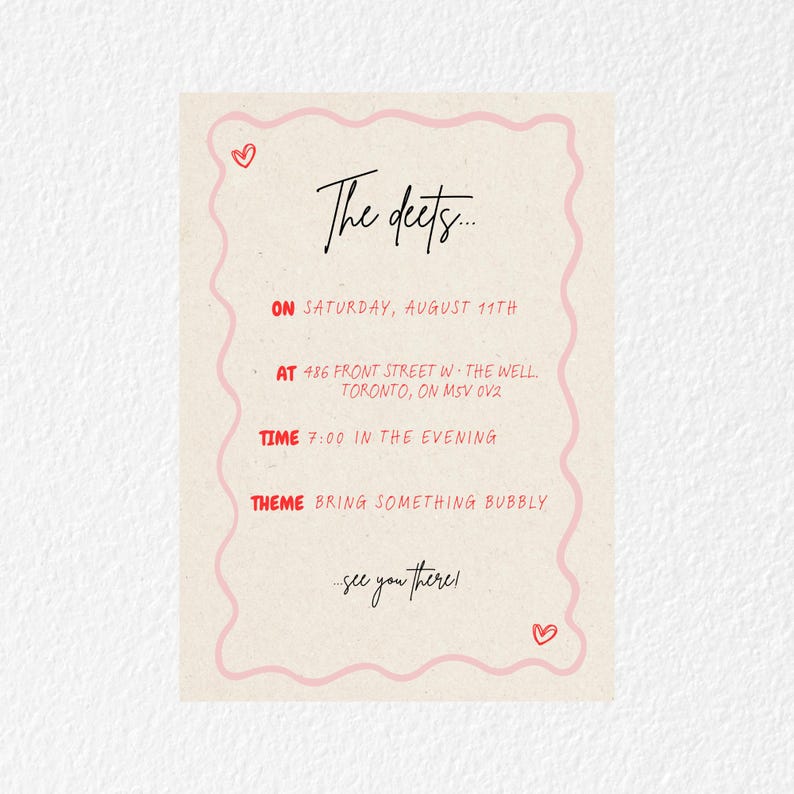 The deets...
ON SATURDAY, AUGUST 11TH
AT 486 FRONT STREET W · THE WELL.
TORONTO, ON M5V 0V2
TIME 7:00 IN THE EVENING
THEME BRING SOMETHING BUBBLY
...see you there!